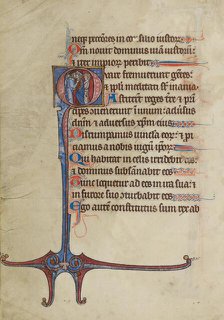 neqꝫ peccatores in co̅silio iustorꝫ
Q̅m nouit dominus uiam iustorū
⁊ iter impiorꝫ peribit
Quare fremuerunt gentes
⁊ pl̅i meditati st̅ inania
Astiterūt reges tr̅e ⁊ pri
cipes ꝯuenerunt in unum adūsus
dn̅m ⁊ aduersus xp̅m eius
Dirumpamus uincl̅a eorꝫ ⁊ pi
ciamus a nobis iugū ip̅orꝫ
Qui habitat in celis irridebit eos
⁊ dominus subsa̅nabit eos
Tunc loquetur ad eos in ira sua ⁊
in furore suo ꝯturbabit eos
Ego aute̅ constitutus sum rex ab